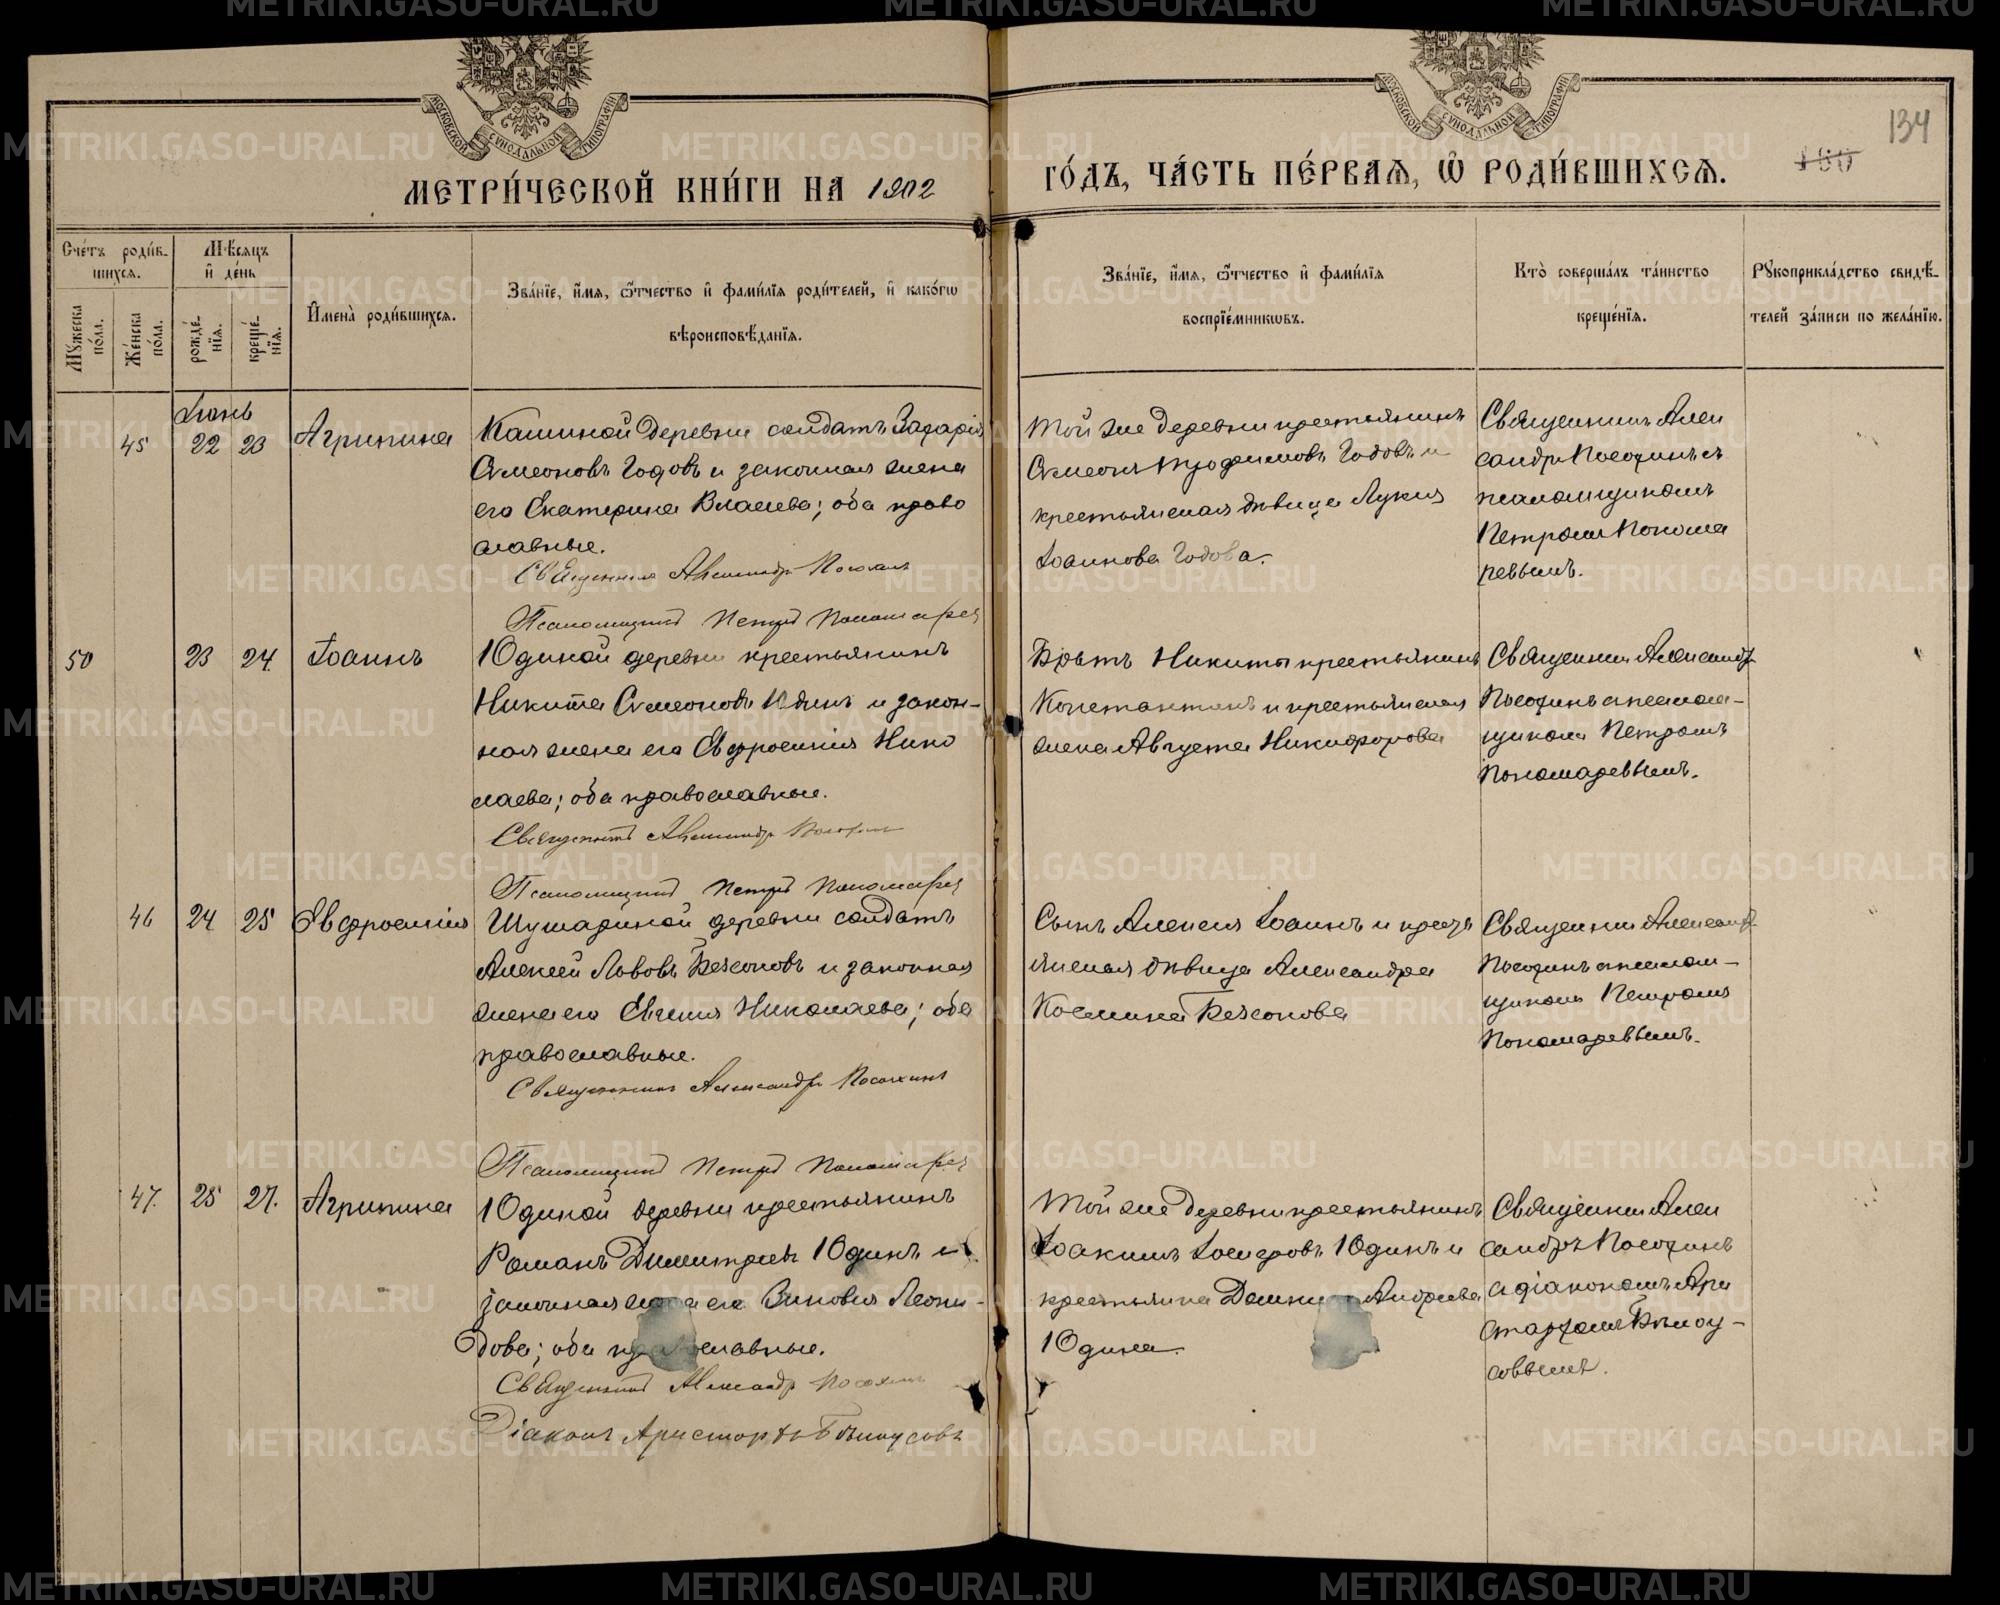 МОСКОВСКОЙ СУНОДАЛЬНОЙ ТИПОГРАФІИ
МОСКОВСКОЙ СУНОДАЛЬНОЙ ТИПОГРАФІИ
134
МЕТРИ́ЧЕСКОЙ КНИ́ГИ НА 1902
ГО́ДЪ, ЧА́СТЬ ПЕ́РВАѦ, Ѽ РОДИ́ВШИХСѦ.
Сче́тъ роди́в-
шихсѧ.
Мꙋ́жеска по́ла.
Же́нска по́ла.
Мѣ́сѧцъ
и҆ де́нь
рожде́-
нїѧ.
креще́-
нїѧ.
И҆мена̀ роди́вшихсѧ.
Зва́нїе, и҆́мѧ, ѻ҆́тчество и҆ фами́лїѧ роди́телей, и҆ како́гѡ
вѣроисповѣ́данїѧ.
Зва́нїе, и҆́мѧ, ѻ҆́тчество и҆ фами́лїѧ
воспрїе́мникѡвъ.
Кто̀ соверша́лъ та́инство
креще́нїѧ.
Рꙋкоприкла́дство свидѣ́-
телей за́писи по жела́нїю.
Іюнь
45 22 23 Агрипина
Кашиной деревни солдатъ Захарія
Симеоновъ Годовъ и законная жена
его Екатерина Власіева; оба право
славные.
Священникъ Александръ Посохинъ
Псаломщикъ Петръ Пономарев
Той же деревни крестьянинъ
Симеонъ Трофимовъ Годовъ и
крестьянская дѣвица Лукія
Іоаннова Годова.
Священникъ Алек
сандръ Посохинъ съ
псаломщикомъ
Петромъ Понома
ревымъ.
50 23 24. Іоаннъ
Юдиной деревни крестьянинъ
Никита Симеоновъ Юдинъ и закон-
ная жена его Евфросинія Нико
лаева; оба православные.
Священникъ Александръ Посохинъ
Псаломщикъ Петръ Пономарев
Братъ Никиты крестьянинъ
Константинъ и крестьянская
жена Августа Никифорова
Священникъ Александръ
Посохинъ с псалом-
щикомъ Петромъ
Пономаревымъ.
46 24 25 Евфросинія
Шушариной деревни солдатъ
Алексей Львовъ Безсоновъ и законная
жена его Евгенія Николаева; оба
православные.
Священникъ Александръ Посохинъ
Псаломщикъ Петръ Пономарев
Сынъ Алексея Іоаннъ и крестья
янская дѣвица Александра
Космина Безсонова
Священникъ Александръ
Посохинъ с псалом-
щикомъ Петромъ
Пономаревымъ.
47. 25 27. Агрипина
Юдиной деревни крестьянинъ
Романъ Димитріевъ Юдинъ и
законная жена его Зиновія Леони-
дова; оба православные.
Священникъ Александръ Посохинъ
Діаконъ Аристархъ Бѣлоусовъ
Той же деревни крестьянинъ
Іоакимъ Іосифовъ Юдинъ и
крестьянка Домника Андреева
Юдина.
Священникъ Алек
сандръ Посохинъ
с діакономъ Ари
стархомъ Бѣлоу-
совымъ.
METRIKI.GASO-URAL.RU